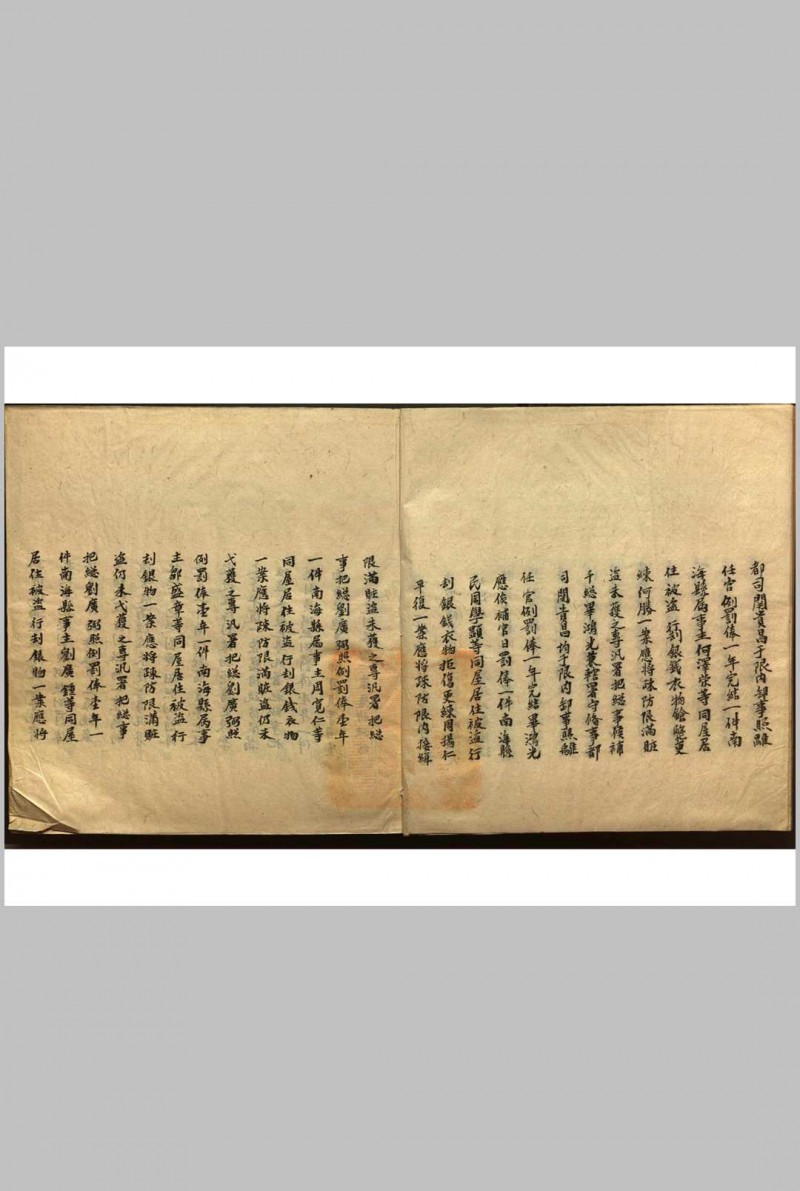 都司閔貴昌于限内卸事照離
任官例罰俸一年完結一件南
海縣属事主何澤榮等同屋居
住被盗行刦銀錢衣物鎗斃更
練何勝一案應將疎防限滿賍
盗未獲之專汎署把總事候補
千總畢鴻光兼轄署守备事都
司閔貴昌均于限内卸事照離
任官例罰俸一年完結畢鴻光
應俟補官日罰俸一件南海縣
民周學顯等同屋居住被盗行
刦銀錢衣物拒傷更練周揚仁
平復一案應將疎防限内接緝
限滿賍盗未獲之專汎署把總
事把總劉廣弼照例罰俸壹年
一件南海縣属事主周寛仁等
同屋居住被盗行刦銀錢衣物
一案應將疎防限滿賍盗仍未
弋獲之專汎署把總劉廣弼照
例罰俸壹年一件南海縣属事
主鄧盛章等同屋居住被盗行
刦銀物一案應將疎防限滿賍
盗仍未弋獲之專汎署把總事
把總劉廣弼照例罰俸壹年一
件南海縣事主劉廣鍾等同屋
居住被盗行刦銀物一案應將